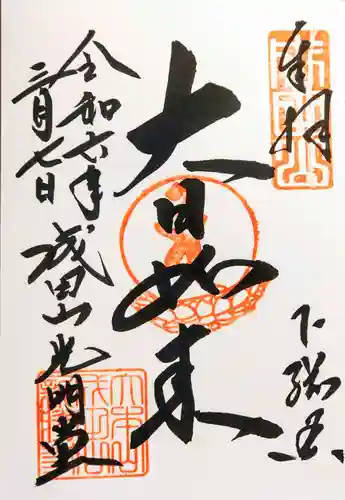 奉拝
下総国
大日如来
令和六年
三月七日
成田山光明堂